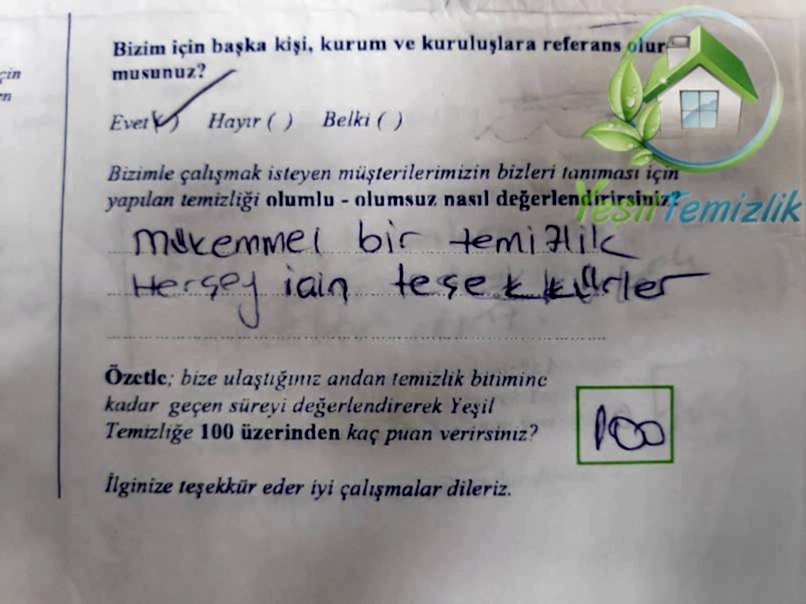 çin
en
Bizim için başka kişi, kurum ve kuruluşlara referans olur
musunuz?
Evet ( ) Hayır ( ) Belki ( )
Bizimle çalışmak isteyen müşterilerimizin bizleri tanıması için
yapılan temizliği olumlu - olumsuz nasıl değerlendirirsiniz?
Yeşil Temizlik
Mükemmel bir temizlik
Herşey için teşekkürler
Özetle; bize ulaştığınız andan temizlik bitimine
kadar geçen süreyi değerlendirerek Yeşil
Temizliğe 100 üzerinden kaç puan verirsiniz?
100
İlginize teşekkür eder iyi çalışmalar dileriz.